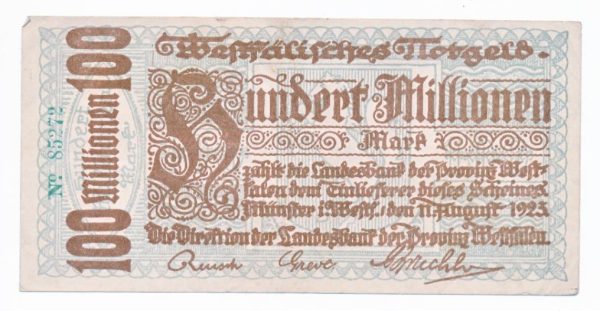 Westfälisches Notgeld.
Hundert Millionen
Mark
zahlt die Landesbank der Provinz West-
falen dem Einlieferer dieses Scheines.
Münster i. Westf., den 11. August 1923.
Die Direktion der Landesbank der Provinz Westfalen.
Reusch
100 Millionen 100
Hundert
Mark
No 85272